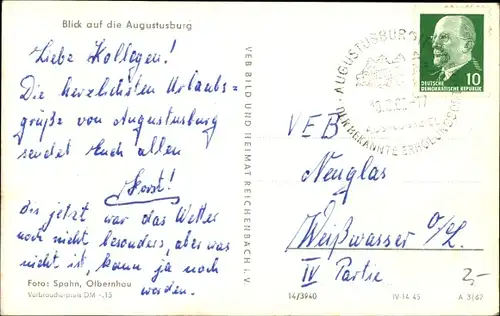 Blick auf die Augustusburg
Liebe Kollegen!
Die herzlichsten Urlaubs-
grüße von Augustusburg
sendet Euch allen
Horst!
bis jetzt war das Wetter
noch nicht besonders, aber was
nicht ist, kann ja noch
werden.
Foto: Spahn, Olbernhau
Verbraucherpreis DM -,15
VEB BILD UND HEIMAT REICHENBACH i. V.
AUGUSTUSBURG
DER BEKANNTE ERHOLUNGSORT
10
DEUTSCHE
DEMOKRATISCHE REPUBLIK
VEB
Neuglas
Weißwasser O/L.
IV Partie
2,-
14/3940
IV-14-45
A 3/67